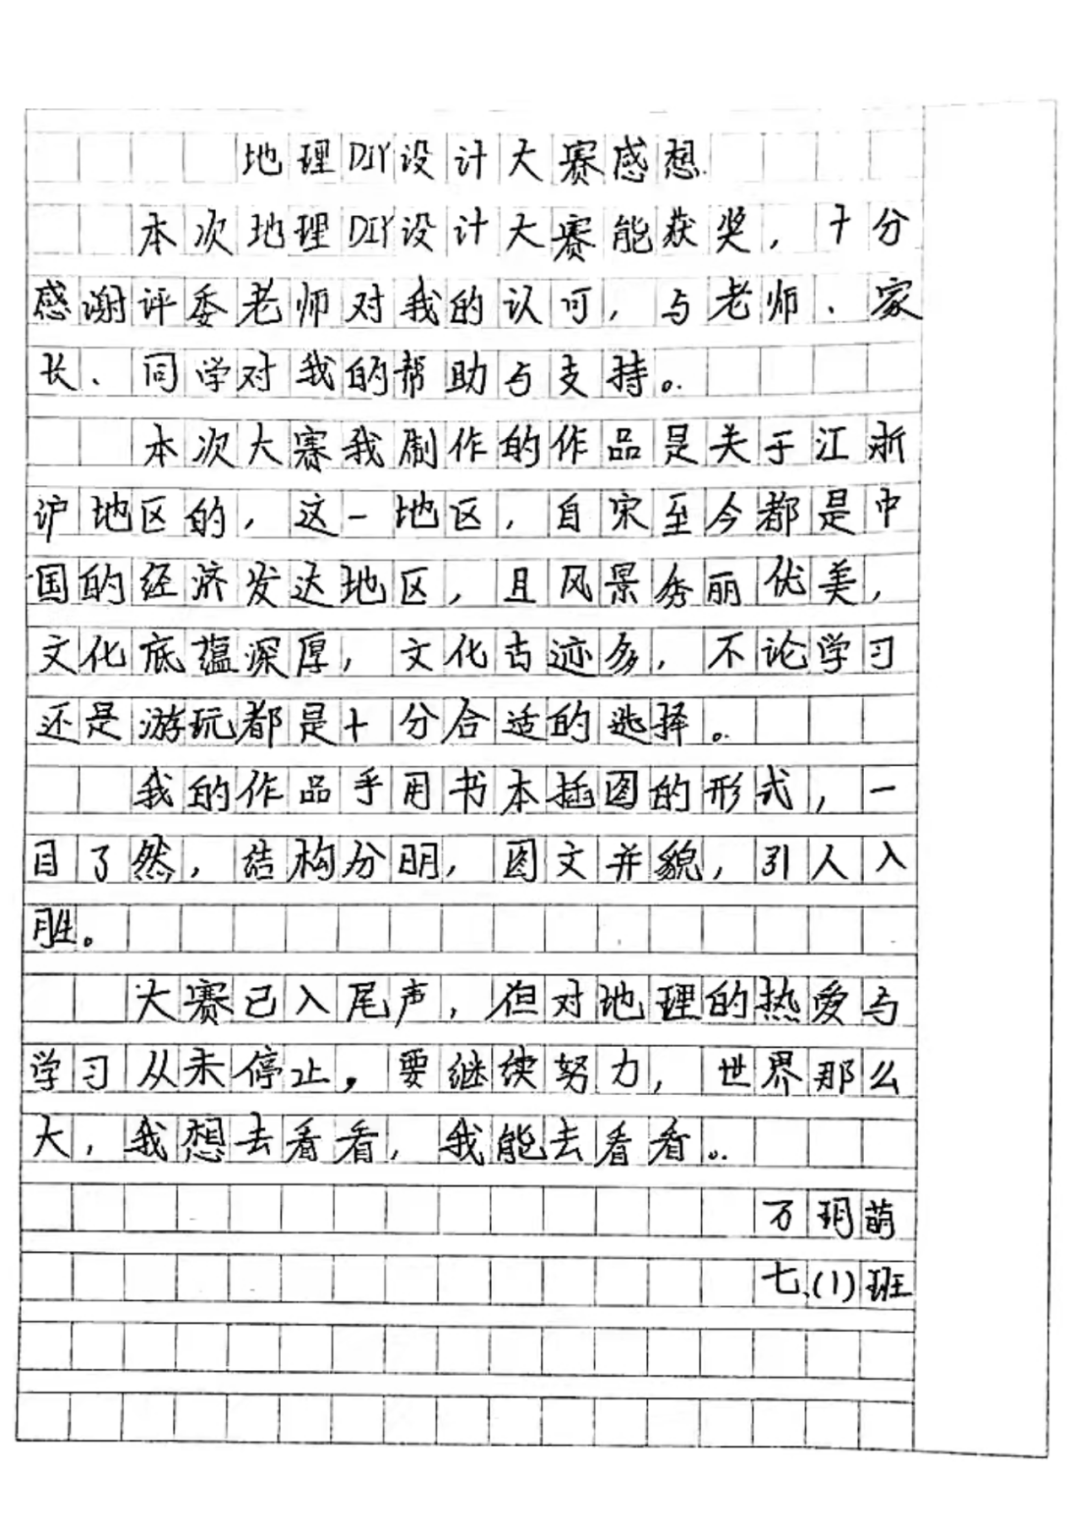 地理DIY设计大赛感想
本次地理DIY设计大赛能获奖，十分
感谢评委老师对我的认可，与老师、家
长、同学对我的帮助与支持。
本次大赛我制作的作品是关于江浙
沪地区的，这一地区，自宋至今都是中
国的经济发达地区，且风景秀丽优美，
文化底蕴深厚，文化古迹多，不论学习
还是游玩都是十分合适的选择。
我的作品手用书本插图的形式，一
目了然，结构分明，图文并貌，引人入
胜。
大赛已入尾声，但对地理的热爱与
学习从未停止，要继续努力，世界那么
大，我想去看看，我能去看看。
万玥萌
七、(1)班